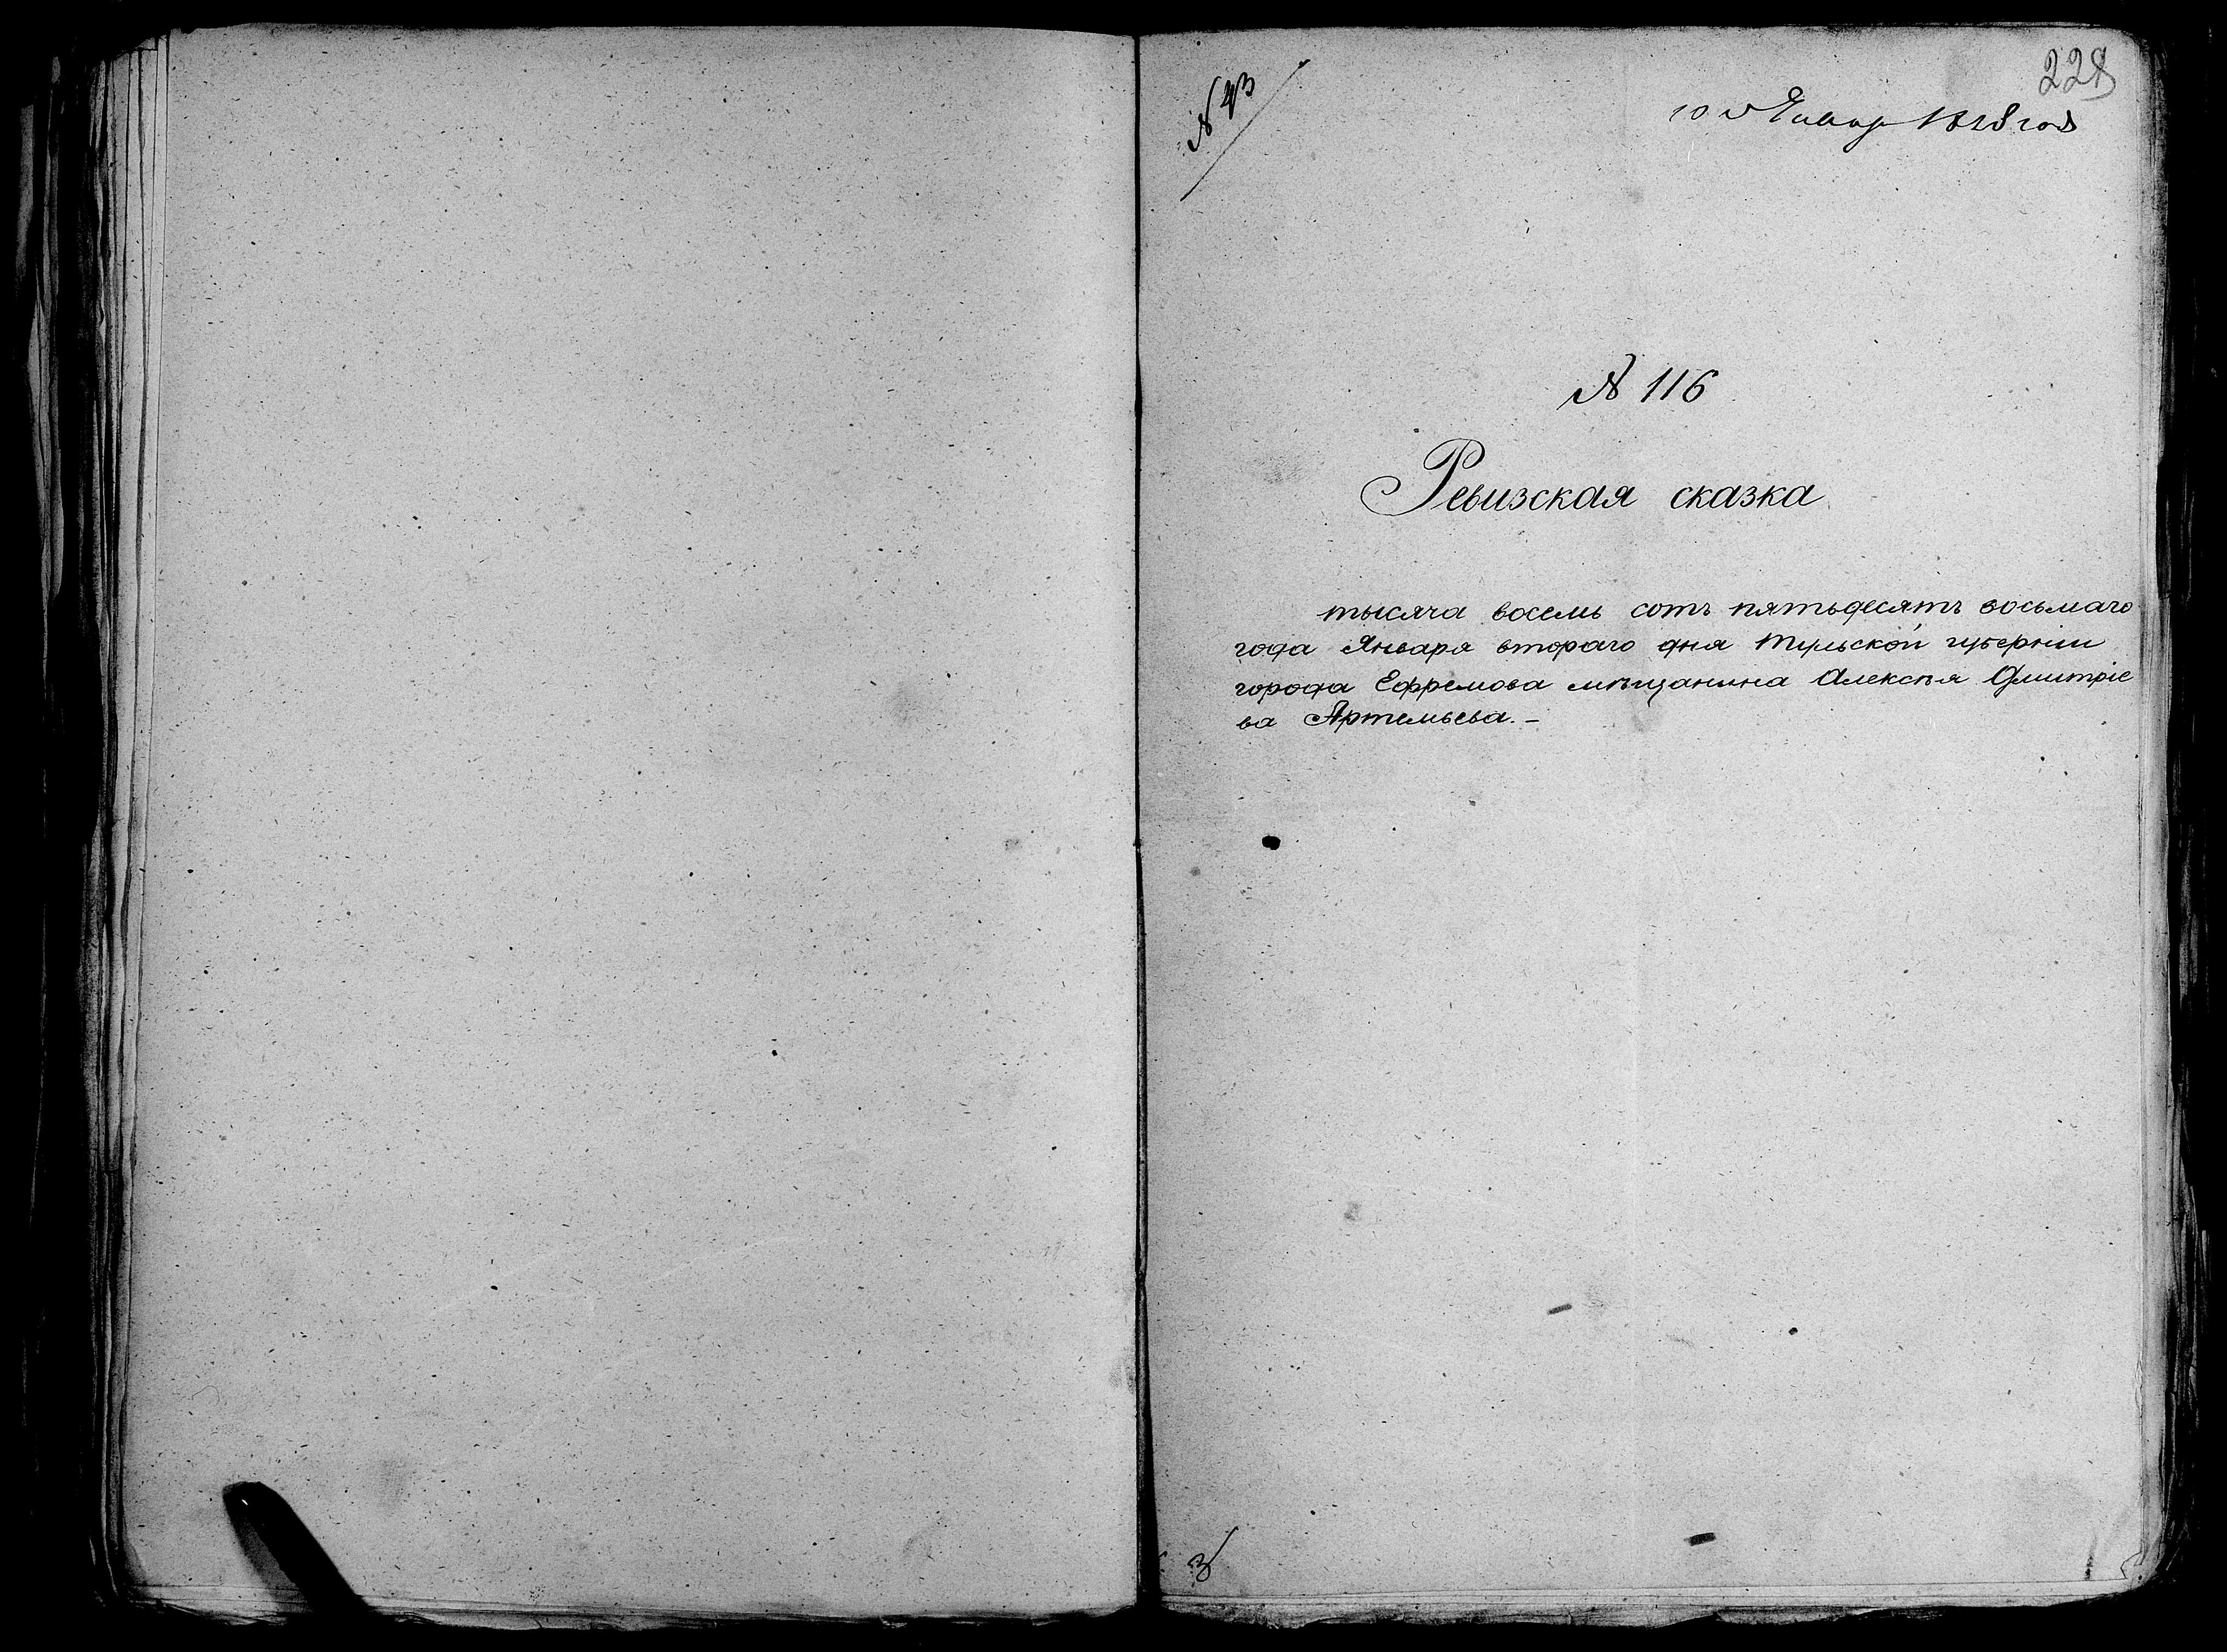 № 43
228
10 Январ 1858 год
№ 116
Ревизская сказка
тысяча восемь сотъ пятьдесятъ восьмаго
года Января втораго дня Тульской губерніи
города Ефремова мѣщанина Алексѣя Дмитріе
ва Артемьева. –
3